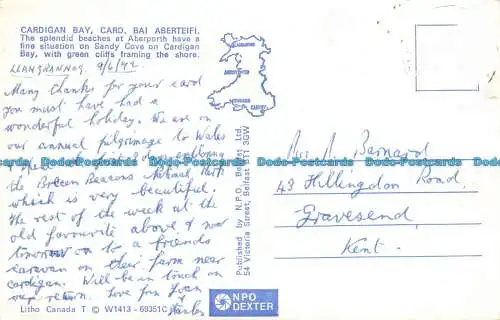 CARDIGAN BAY, CARD. BAI ABERTEIFI.
The splendid beaches at Aberporth have a
fine situation on Sandy Cove on Cardigan
Bay, with green cliffs framing the shore.
LLANGRANNOG. 9/6/92
Many thanks for your card
you must have had a
wonderful holiday. We are on
our annual pilgrimage to Wales
the Brecon Beacons National Park
which is very beautiful.
The rest of the week at the
old favourite above, & now
tomorrow on to a friends
caravan on their farm near
Cardigan. Will be in touch on
our return. Love from Joan
Stanley
ABERPORTH
CARDIFF
Published by N.P.O. Belfast Ltd.
54 Victoria Street, Belfast BT1 3GW
Mrs A. Barnard
43 Hillingdon Road,
Gravesend,
Kent.
Postcards-Today.com
Litho Canada T © W1413 - 69351C
NPO
DEXTER